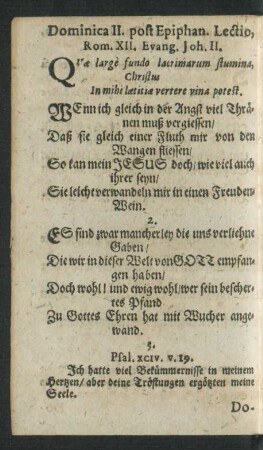 Dominica II. post Epiphan. Lectio,
Rom. XII. Evang. Joh. II.
QVæ largè fundo lacrimarum flumina,
Christus
In mihi lætitiæ vertere vina potest.
WEnn ich gleich in der Angst viel Thrä-
nen muß vergiessen/
Daß sie gleich einer Fluth mir von den
Wangen fliessen/
So kan mein JESUS doch/ wie viel auch
ihrer seyn/
Sie leicht verwandeln mir in einen Freuden-
Wein.
2.
ES sind zwar mancherley die uns verliehne
Gaben/
Die wir in dieser Welt von GOTT empfan-
gen haben/
Doch wohl! und ewig wohl/ wer sein bescher-
tes Pfand
Zu Gottes Ehren hat mit Wucher ange-
wand.
3.
Psal. XCIV. v. 19.
Ich hatte viel Bekümmernisse in meinem
Hertzen/ aber deine Tröstungen ergötzten meine
Seele.
Do-